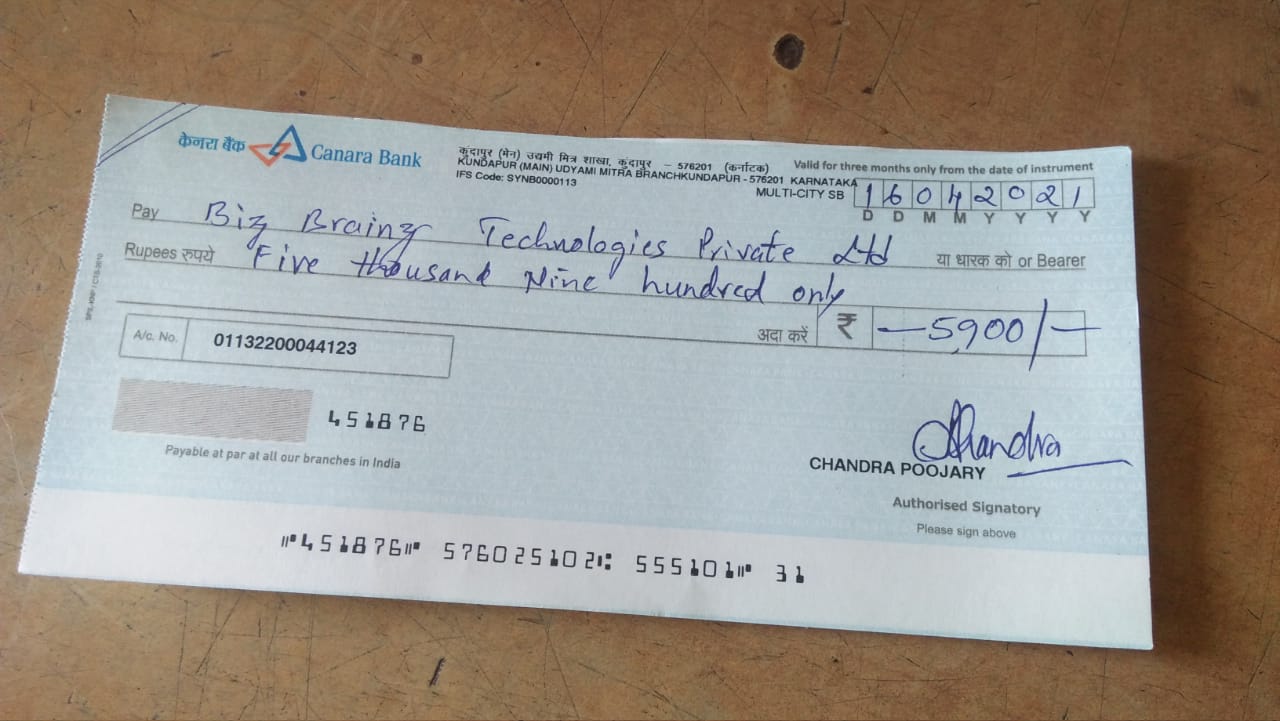 केनरा बैंक Canara Bank
कुंदापुर (मेन) उद्यमी मित्र शाखा, कुंदापुर - 576201 (कर्नाटक)
KUNDAPUR (MAIN) UDYAMI MITRA BRANCHKUNDAPUR - 576201 KARNATAKA
IFS Code: SYNB0000113
MULTI-CITY SB
Valid for three months only from the date of instrument
16042021
D D M M Y Y Y Y
Pay Biz Brainz Technologies Private Ltd या धारक को or Bearer
Rupees रुपये Five thousand Nine hundred only
अदा करें ₹ —5,900/—
A/c. No. 01132200044123
451876
Payable at par at all our branches in India
Chandra
CHANDRA POOJARY
Authorised Signatory
Please sign above
⑈451876⑈ 576025102⑆ 555101⑈ 31